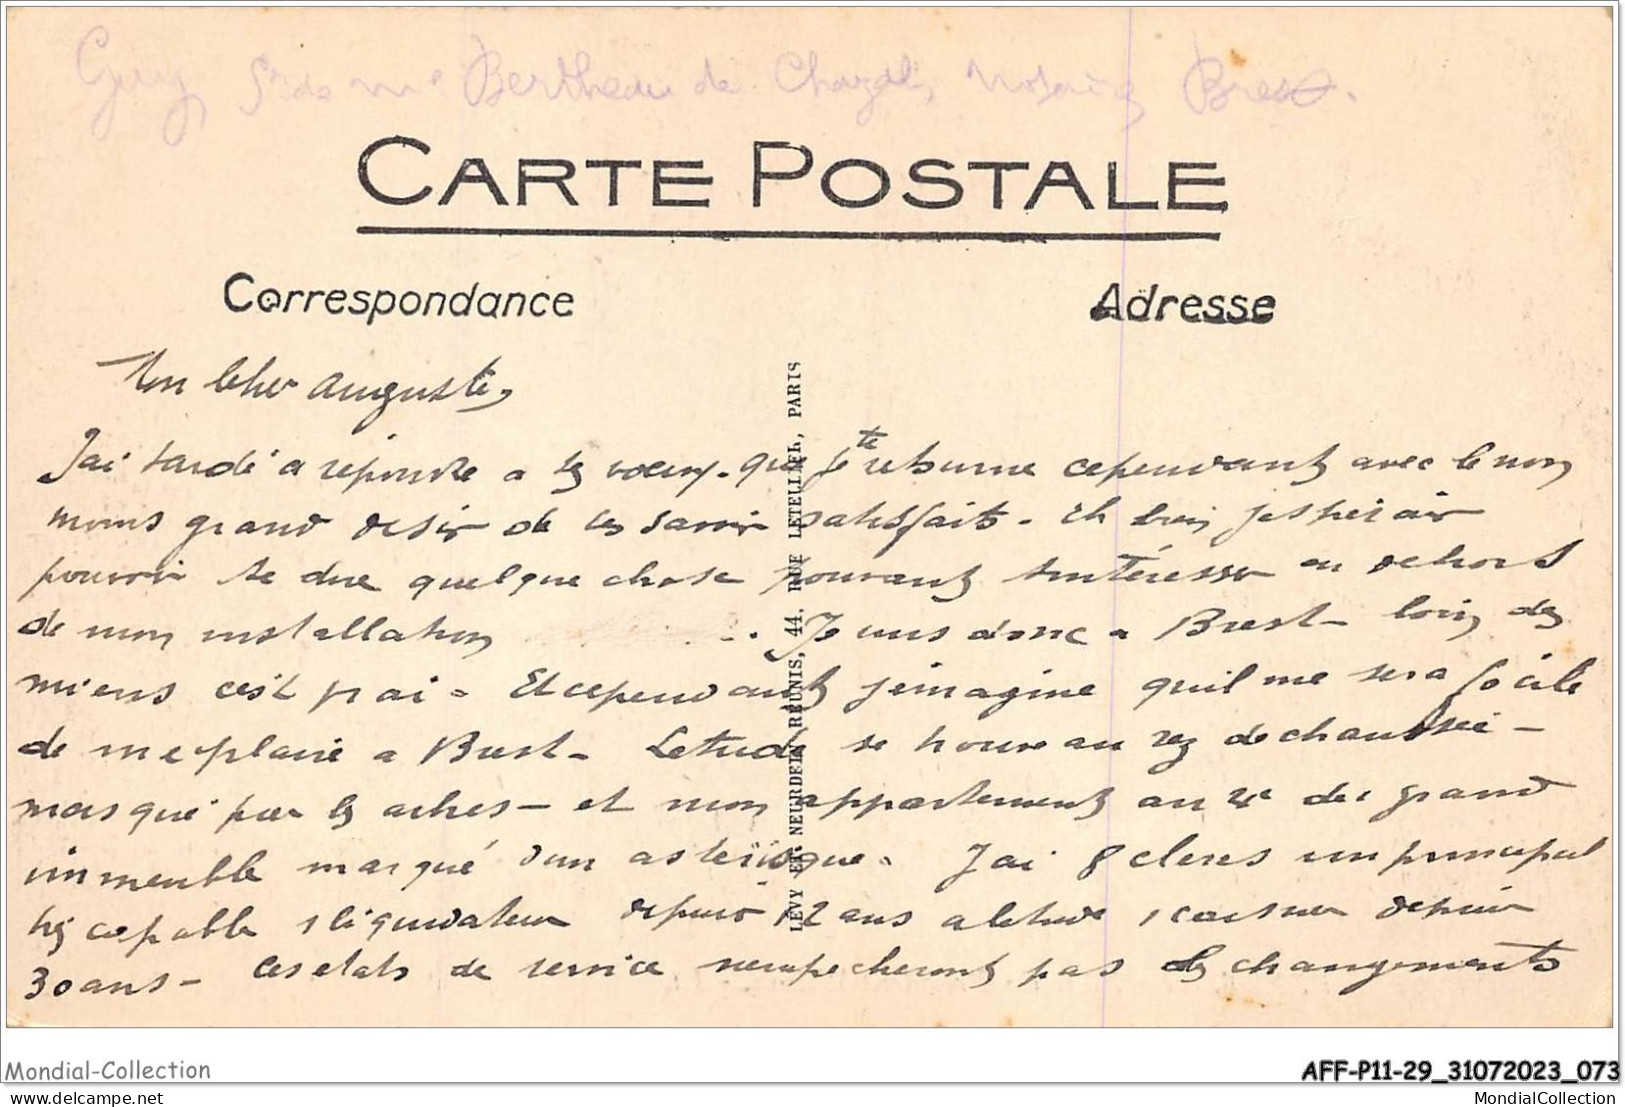 Guy, de Me Bertheau de Chazal, Notaire Brest.
CARTE POSTALE
Correspondance
Adresse
Mon cher Auguste,
J'ai tardé a repondre a tes voeux. que je te retourne cependant avec le non
moins grand desir de les savoir satisfaits. Eh bien j'espère
pouvoir te dire quelque chose pouvant t'intéresser en dehors
de mon installation . Je suis donc a Brest - loin des
miens c'est vrai - Et cependant j'imagine qu'il me sera facile
de me plaire a Brest - L'etude se trouve au rez de chaussée -
masqué par les arbres - et mon appartement au 2e du grand
immeuble marqué d'un asterisque. J'ai 8 clercs un principal
tres capable 1 liquidateur depuis 12 ans a l'etude 1 caissier depuis
30 ans - Ces etats de service n'empecheront pas des changements
LEVY ET NEURDEIN RÉUNIS, 44, RUE LETELLIER, PARIS
Mondial-Collection
AFF-P11-29_31072023_073
delcampe.net
MondialCollection